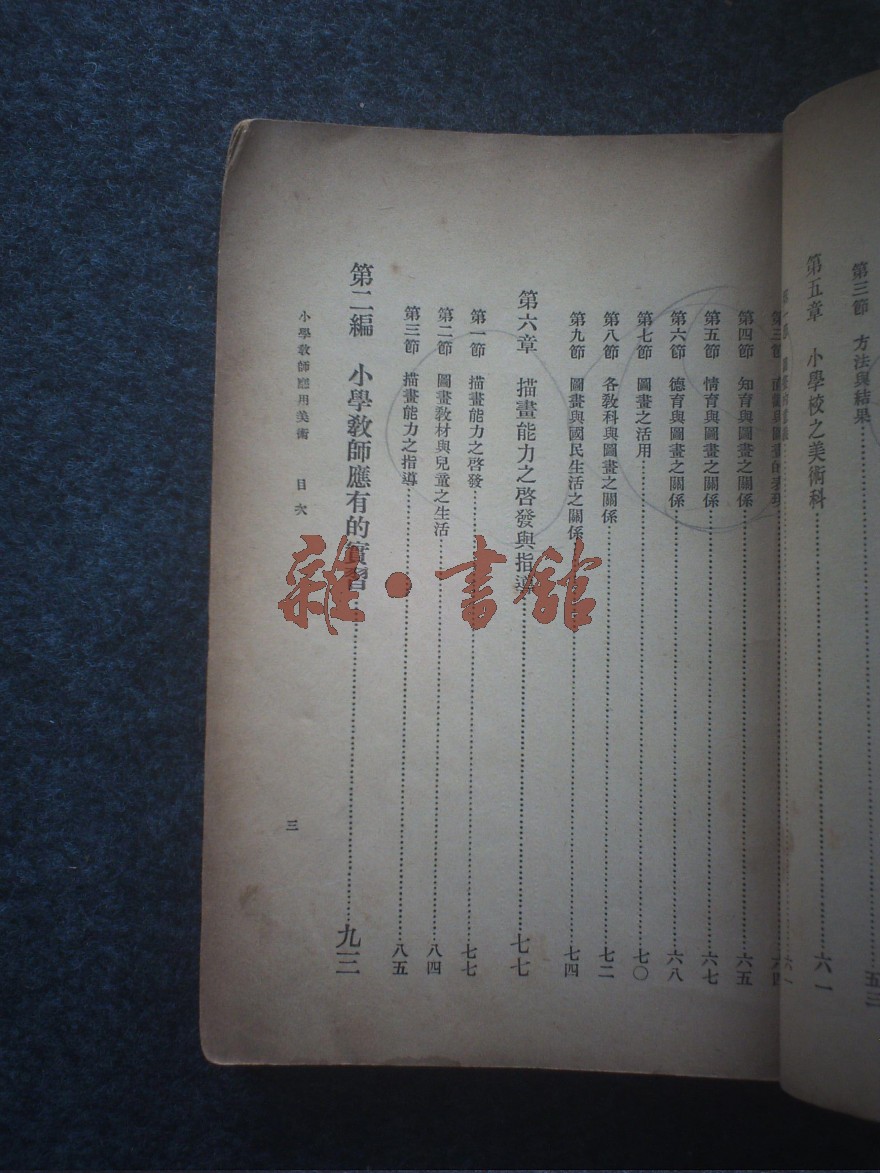 第三節 方法與結果 五三
第五章 小學校之美術科 六一
六一
第三節 六四
第四節 知育與圖畫之關係 六五
第五節 情育與圖畫之關係 六七
第六節 德育與圖畫之關係 六八
第七節 圖畫之活用 七〇
第八節 各教科與圖畫之關係 七二
第九節 圖畫與國民生活之關係 七四
第六章 描畫能力之啓發與指導 七七
第一節 描畫能力之啓發 七七
第二節 圖畫教材與兒童之生活 八四
第三節 描畫能力之指導 八五
第二編 小學教師應有的實習 九三
小學教師應用美術 目次 三
雜·書館